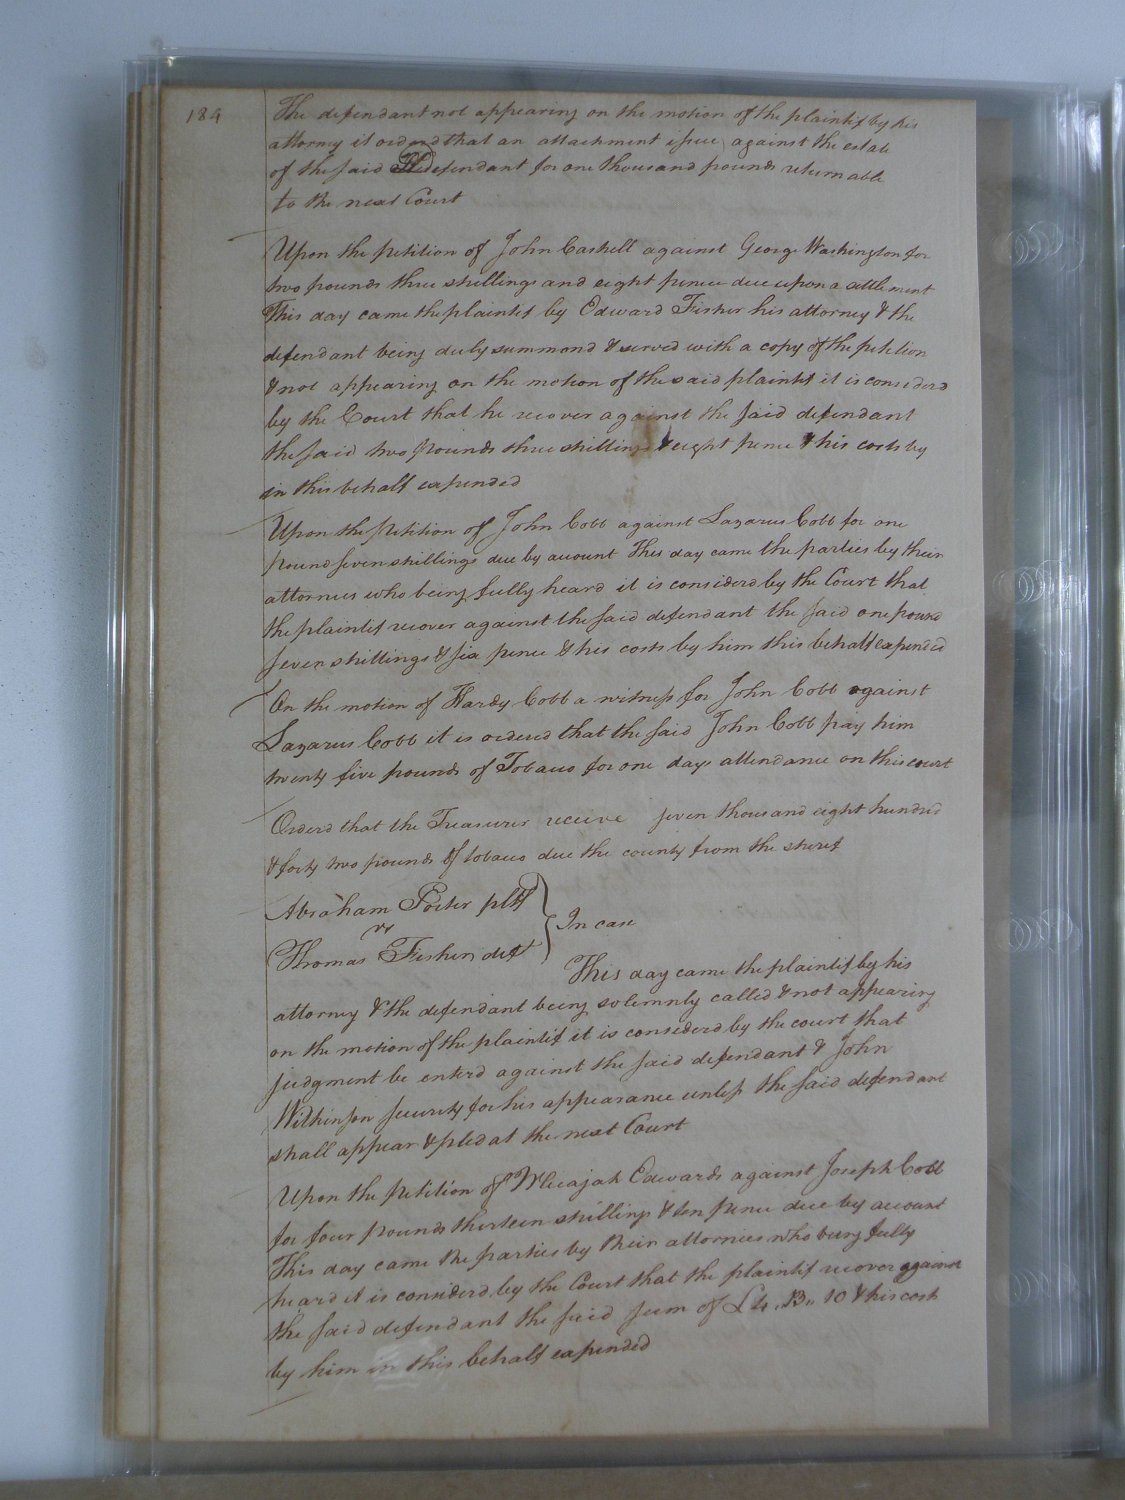 184
The defendant not appearing on the motion of the plaintif by his
attorney it orderd that an attachment issue against the estate
of the said defendant for one thousand pounds returnable
to the next Court
Upon the petition of John Caskell against George Washington for
two pounds three shillings and eight pence due upon a settlement
This day came the plaintif by Edward Fisher his attorney & the
defendant being duly summond & served with a copy of the petition
& not appearing on the motion of the said plaintif it is considerd
by the Court that he recover against the said defendant
the said two pounds three shillings & eight pence & his costs by
in this behalf expended
Upon the petition of John Cobb against Lazarus Cobb for one
pound seven shillings due by account This day came the parties by their
attornies who being fully heard it is considerd by the Court that
the plaintif recover against the said defendant the said one pound
seven shillings & six pence & his costs by him this behalf expended
On the motion of Hardy Cobb a witness for John Cobb against
Lazarus Cobb it is orderd that the said John Cobb pay him
twenty five pounds of Tobacco for one days attendance on this court
Orderd that the Treasurer receive seven thousand eight hundred
& forty two pounds of tobacco due the county from the sheref
Abraham Porter pltf
vs In case
Thomas Fisher deft
This day came the plaintif by his
attorney & the defendant being solemnly called & not appearing
on the motion of the plaintif it is considerd by the court that
judgment be enterd against the said defendant & John
Wilkinson security for his appearance unless the said defendant
shall appear & pled at the next Court
Upon the petition of Micajah Edwards against Joseph Cobb
for four pounds thirteen shillings & ten pence due by account
This day came the parties by their attornies who being fully
heard it is considerd by the Court that the plaintif recover against
the said defendant the said sum of £4,,13,,10 & his costs
by him in this behalf expended